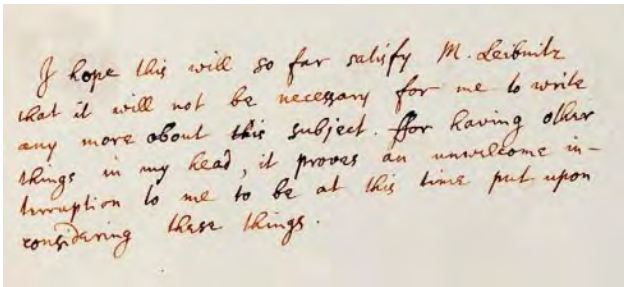 I hope this will so far satisfy M. Leibnitz
that it will not be necessary for me to write
any more about this subject. For having other
things in my head, it proves an unwelcome in-
terruption to me to be at this time put upon
considering these things.